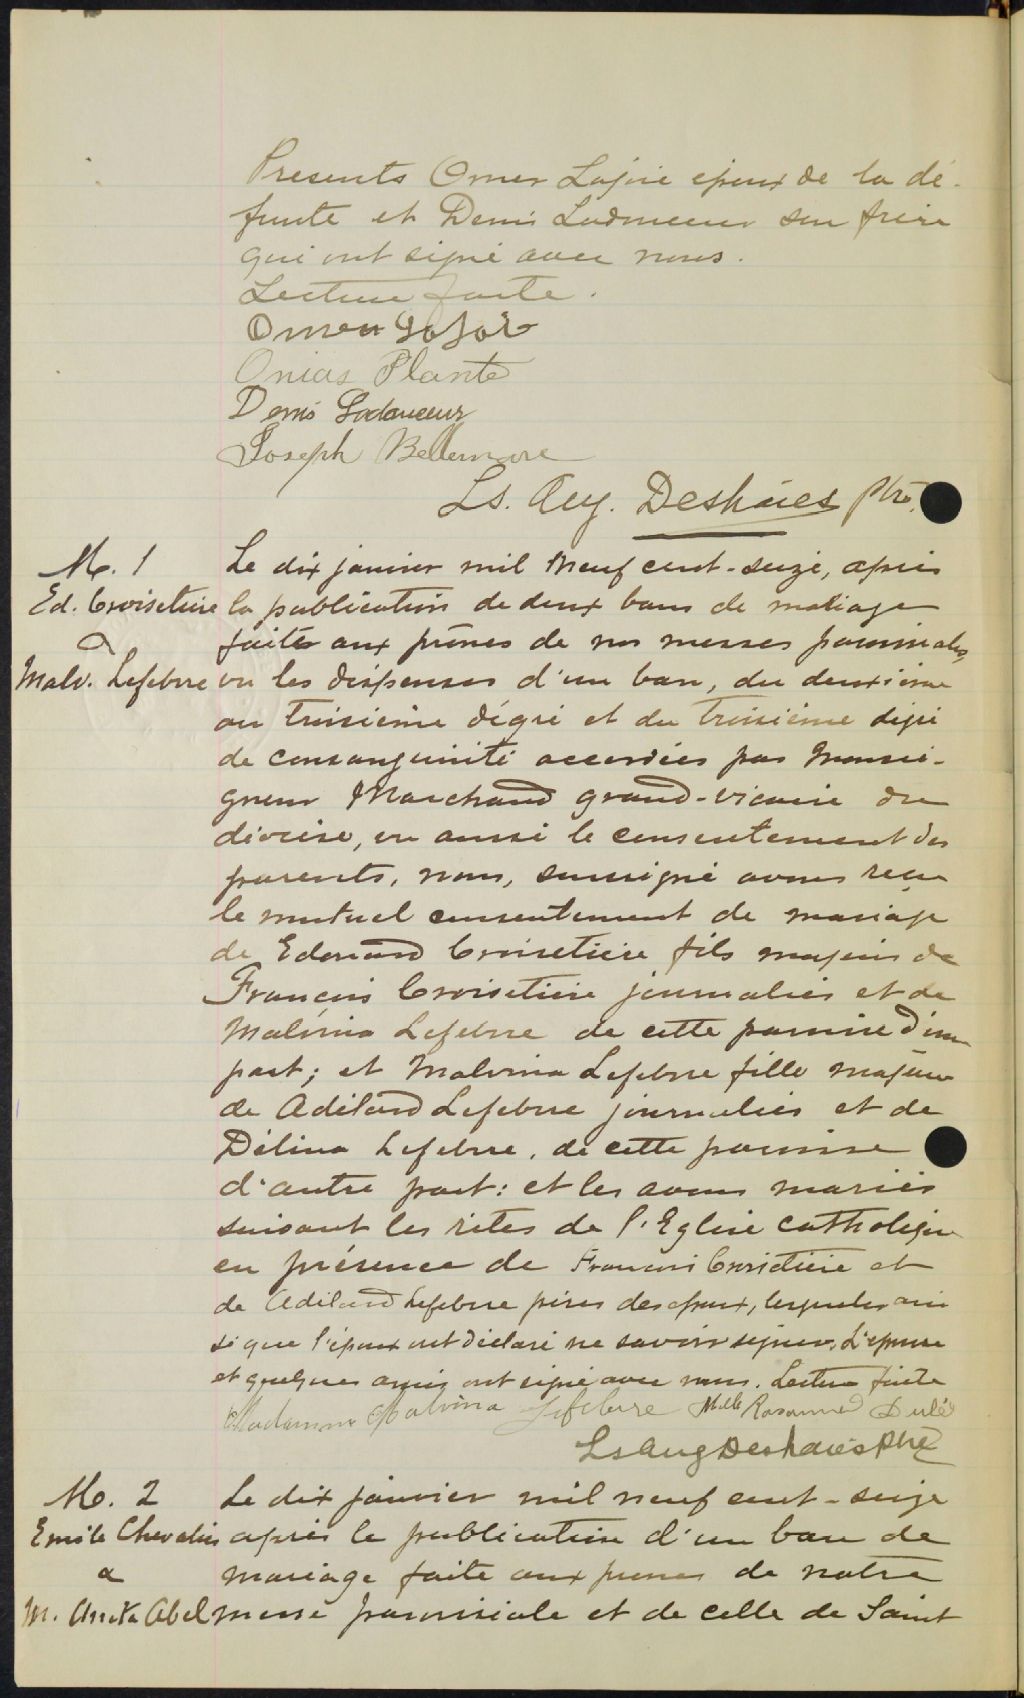 Presents Omer Lajoie epoux de la dé-
funte et Denis Ladouceur son frère
qui ont signé avec nous.
Lecture faite.
Omer Lajoie
Onias Plante
Denis Ladouceur
Joseph Bellemare
Ls. Aug. Deshaies ptre.
M. 1
Ed. Croisetière
&
Malv. Lefebvre
Le dix janvier mil neuf cent-seize, après
la publication de deux bans de mariage
faite aux prônes de nos messes paroissiales,
vu les dispenses d'un ban, du deuxième
au troisième dégré et du troisième dégré
de consanguinité accordées par Monsei-
gneur Marchand grand-vicaire du
diocèse, vu aussi le consentement des
parents, nous, soussigné avons reçu
le mutuel consentement de mariage
de Edouard Croisetière fils majeur de
François Croisetière journalier et de
Malvina Lefebvre de cette paroisse d'une
part; et Malvina Lefebvre fille majeure
de Adélard Lefebvre journalier et de
Délina Lefebvre, de cette paroisse
d'autre part: et les avons mariés
suivant les rites de l'Eglise catholique
en présence de François Croisetière et
de Adélard Lefebvre pères des époux, lesquels ain
si que l'époux ont déclaré ne savoir signer. L'épouse
et quelques amis ont signé avec nous. Lecture faite
Madame Malvina Lefebvre Melle Rosanna Dulé
Ls Aug Deshaies Ptre
M. 2
Emile Chevalier
&
M. Anita Abel
Le dix janvier mil neuf cent-seize
après la publication d'un ban de
mariage faite aux prones de notre
messe paroissiale et de celle de Saint